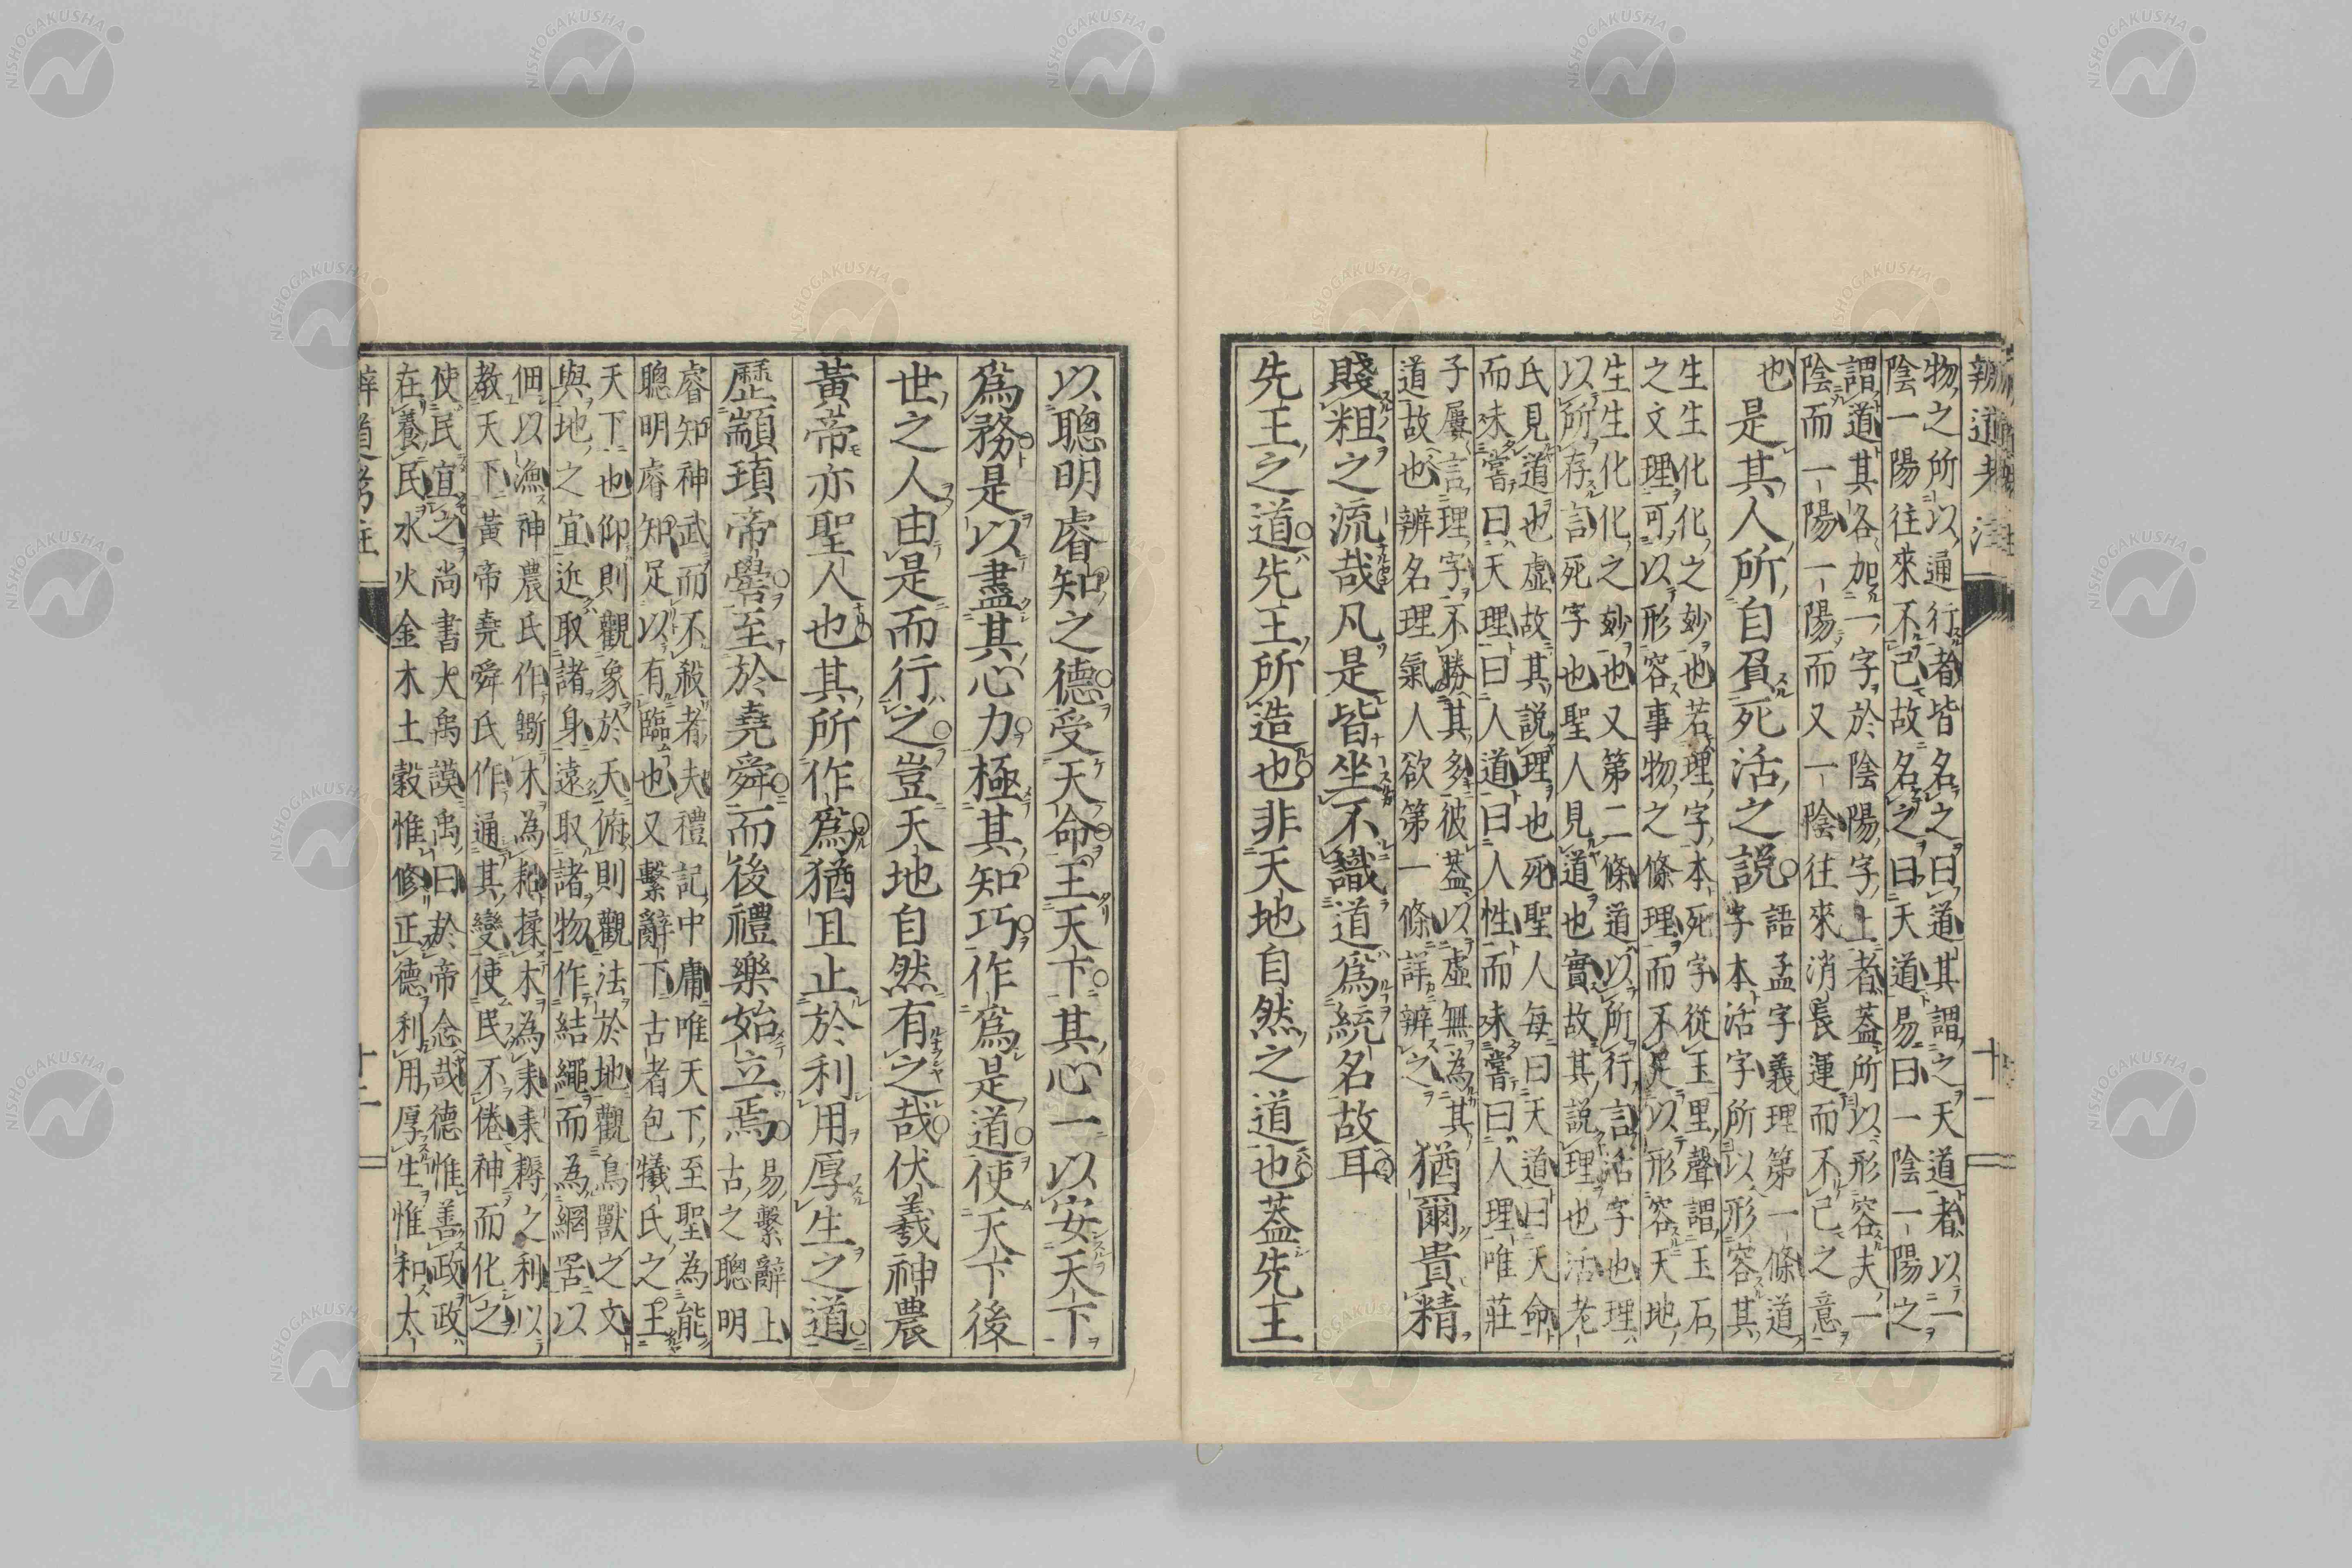 辨道考注
十一
物之所以通行者皆名之曰道其謂之天道者以一
陰一陽往來不已故名之曰天道易曰一陰一陽之
謂道其各加一字於陰陽字上者蓋所以形容夫一
陰而一陽一陽而又一陰往來消長運而不已之意
也
是其人所自負死活之說
語孟字義理第一條道
字本活字所以形容其
生生化化之妙也若理字本死字從玉里聲謂玉石
之文理可以形容事物之條理而不足以形容天地
生生化化之妙也又第二條道以所行言活字也理
以所存言死字也聖人見道也實故其說理也活老
氏見道也虛故其說理也死聖人每曰天道曰天命
而未嘗曰天理曰人道曰人性而未嘗曰人理唯莊
子屢言理字不勝其多彼蓋以虛無為其
道故也辨名理氣人欲第一條詳辨之
猶爾貴精
賤粗之流哉凡是皆坐不識道爲統名故耳
先王之道先王所造也非天地自然之道也蓋先王
以聰明睿知之德受天命王天下其心一以安天下
爲務是以盡其心力極其知巧作爲是道使天下後
世之人由是而行之豈天地自然有之哉伏羲神農
黃帝亦聖人也其所作爲猶且止於利用厚生之道
歷顓頊帝嚳至於堯舜而後禮樂始立焉
易繫辭上
古之聰明
睿知神武而不殺者夫禮記中庸唯天下至聖為能
聰明睿知足以有臨也又繫辭下古者包犧氏之王
天下也仰則觀象於天俯則觀法於地觀鳥獸之文
與地之宜近取諸身遠取諸物作結繩而為網罟以
佃以漁神農氏作斲木為耜揉木為耒耒耨之利以
教天下黃帝堯舜氏作通其變使民不倦神而化之
使民宜之尚書大禹謨禹曰於帝念哉德惟善政政
在養民水火金木土穀惟修正德利用厚生惟和太
辨道考註
十一